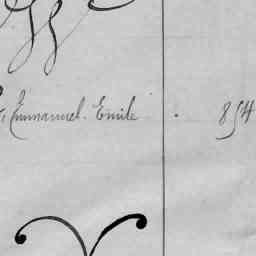 Emmanuel Emile . 854